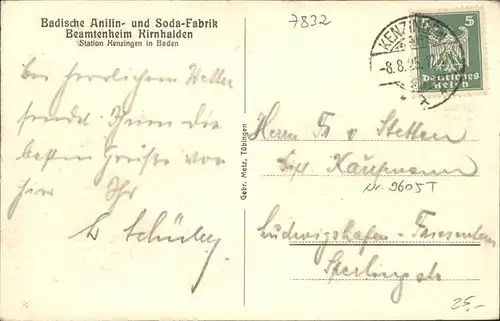 Badische Anilin- und Soda-Fabrik
Beamtenheim Kirnhalden
Station Kenzingen in Baden
7832
KENZINGEN
-8.8.25
5
Deutsches
Reich
Bei herrlichem Wetter
sendet Ihnen die
besten Grüße von
hier Ihr
Gebr. Metz, Tübingen
Herrn Fr v Stetten
Dipl Kaufmann
Nr. 9605T
Ludwigshafen - Friesenheim
Sperlingstr
25,-